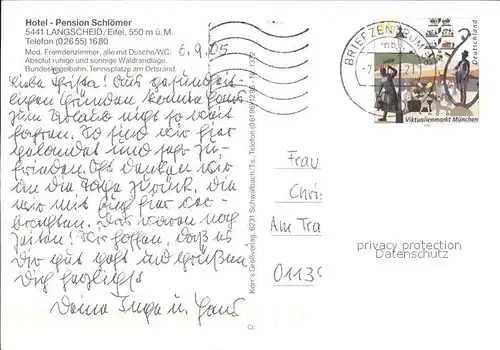 Hotel - Pension Schlömer
5441 LANGSCHEID/Eifel, 550 m ü. M.
Telefon (02655) 1680
Mod. Fremdenzimmer, alle mit Dusche/WC.
Absolut ruhige und sonnige Waldrandlage.
Bundeskegelbahn. Tennisplätze am Ortsrand.
6.9.05
Liebe Christa! Aus gesundheit-
lichen Gründen konnte Hans
zum Urlaub nicht so weit
fahren. So sind wir hier
gelandet und sehr zu-
frieden. Oft denken wir
an die Tage zurück, die
wir mit Dir hier ver-
brachten. Das waren noch
Zeiten! Wir hoffen, daß es
Dir gut geht und grüßen
Dich herzlichst
Deine Inge u. Hans
Korr's Großverlag, 6231 Schwalbach/Ts., Telefon (06196)
BRIEFZENTRUM
Deutschland
Viktualienmarkt München
Frau
Chri
Am Tra
0113
privacy protection
Datenschutz